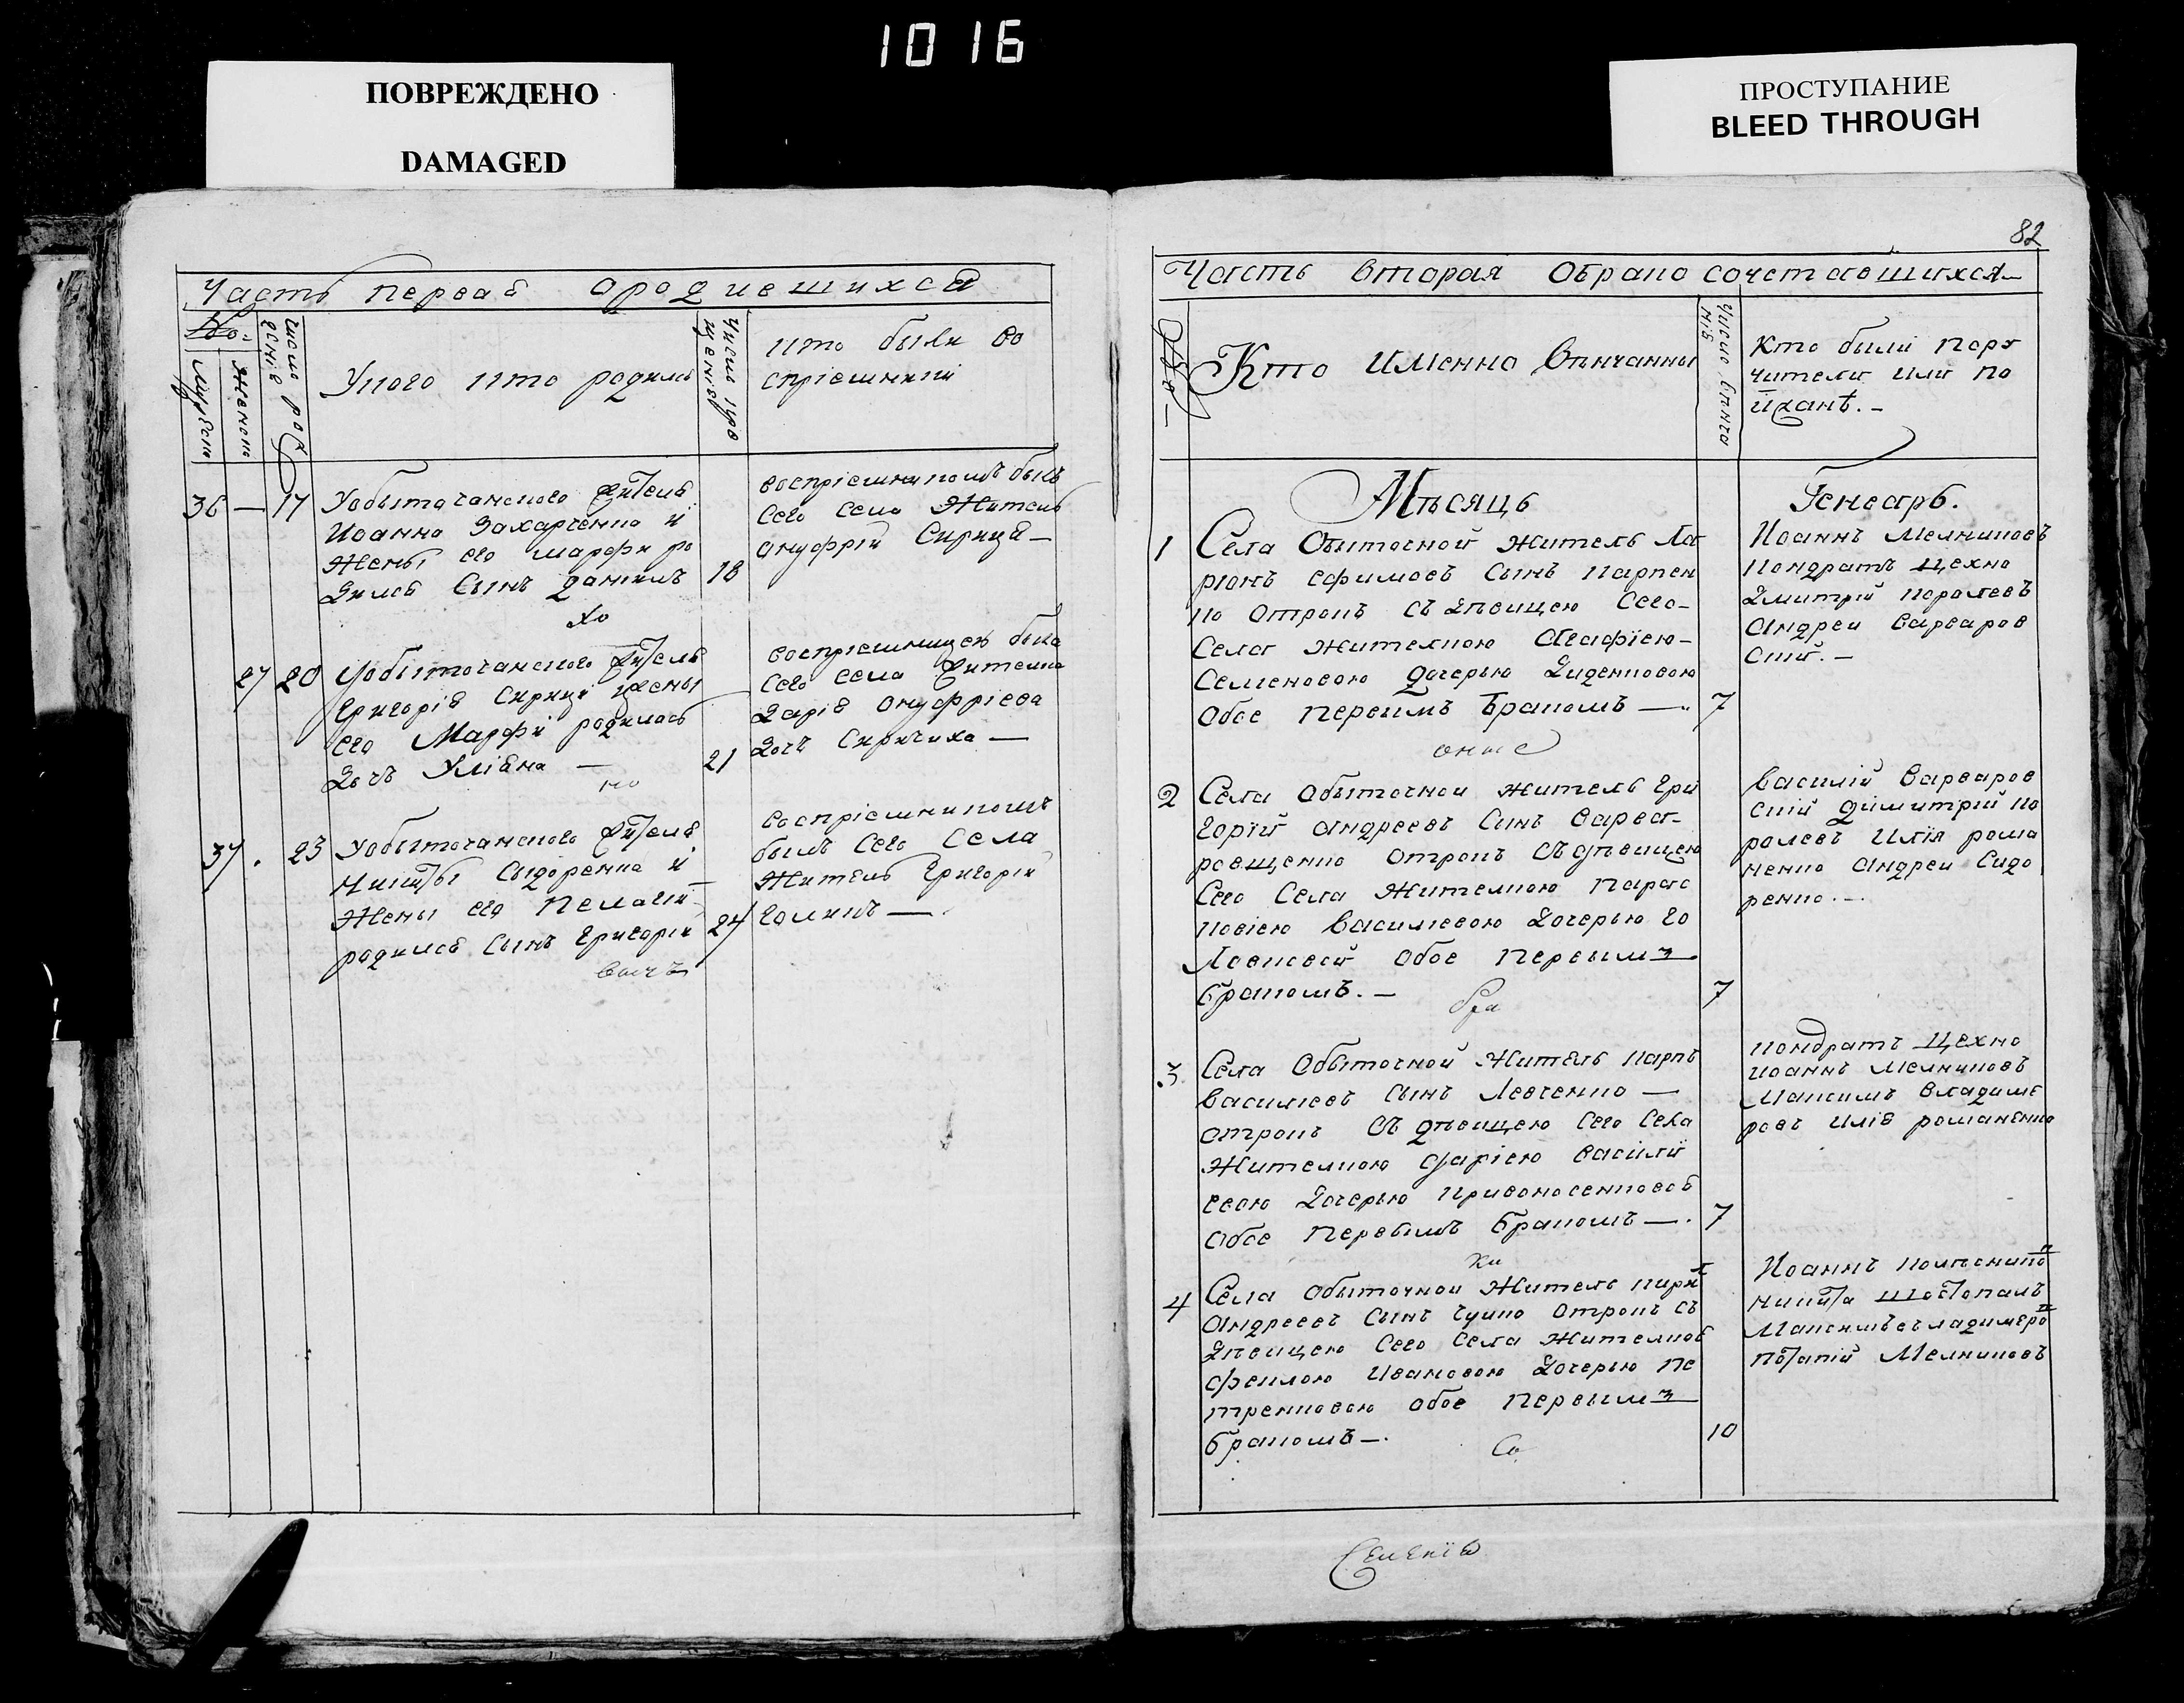 1016
ПОВРЕЖДЕНО
DAMAGED
ПРОСТУПАНИЕ
BLEED THROUGH
Часть первая ородившихся
No:
мужеска
женска
число рож
денїя
Укого кто родилсь
Число кре
щенїя
кто были во
спрїемники
36 — 17 Уобыточанского жителя
Иоанна Захарченка и
жены его марфы ро
дился Сынъ данїилъ 18
воспрїемникомъ былъ
сего села Житель
онуфрїй Сирица —
хо
27 20 Уобыточанского жителя
Григорїя Сирици жены
его Марфи родилась
дочь Улїяна — 21
воспрїемницею была
сего села жителка
Дарїя онуфрїева
дочь Сиричиха —
но
37 . 23 Уобыточанского жителя
Никиты Сыдоренка и
Жены его Пелагїи
родился Сынъ Григорїй 24
воспрїемникомъ
былъ сего Села
Житель Григорїй
Голикъ —
вачъ
82
Часть вторая Обрако сочетавшихся
Кто именно Вѣнчанны
Число вѣнча
нїя
Кто были пору
чители или по
їзжанѣ. —
Мѣсяцъ Генварь.
1 Села Обыточной житель Ла
рїонъ ефимовъ Сынъ Карпен
ко отрокъ съ дѣвицею Сего
Села жителкою Агафїею
Семеновою дочерью Диденковою
Обое Первимъ Бракомъ —. 7
Иоаннъ Мелниковъ
Кондратъ Цехно
Дмитрїй Королевъ
Андрей Варвaров
скїй. —
оние
2 Села Обыточной житель Гри
горїй Андреевъ Синъ Варва
ровщенко отрокъ съ дѣвицею
Сего Села Жителкою Парас
ковїею Василевою Дочерью Го
ловковой Обое Первимъ
Бракомъ. — 7
Василїй Варваров
скїй Димитрїй Ко
ролевъ Илїя рома
ненко Андрей Сидо
ренко. —
бра
3 Села Обыточной Житель Карпъ
Василїевъ Сынъ Левченко —
отрокъ Съ дѣвицею Сего Села
Жителкою Марїею Василї
евою Дочерью Кривоносенковой
Обое Первымъ Бракомъ —. 7
Кондратъ Цехно
Иоаннъ Мелниковъ
Максимъ Владиме
ровъ Илїя романенко
ки
4 Села Обыточной Житель кирил
Андреевъ Сынъ Чуйко Отрокъ съ
Дѣвицею Сего Села Жителкой
феклою Ивановою Дочерью Пе
тренковою Обое Первимъ
Бракомъ —. 10
Иоаннъ Колѣсников
Никита Шостопалъ
Максимъ владимеров
Потапїй Мелниковъ
Со